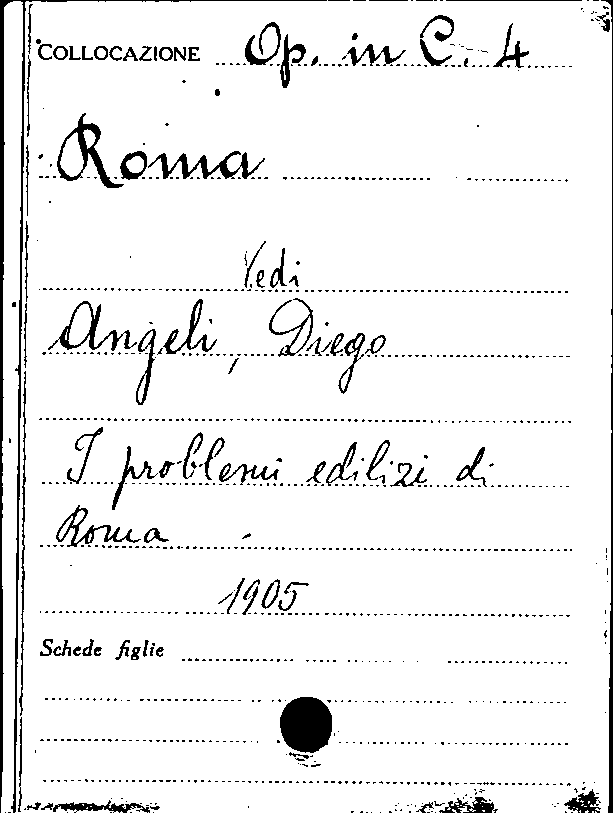 COLLOCAZIONE Op. in C. 4
Roma
Vedi
Angeli, Diego
I problemi edilizi di
Roma -
1905
Schede figlie